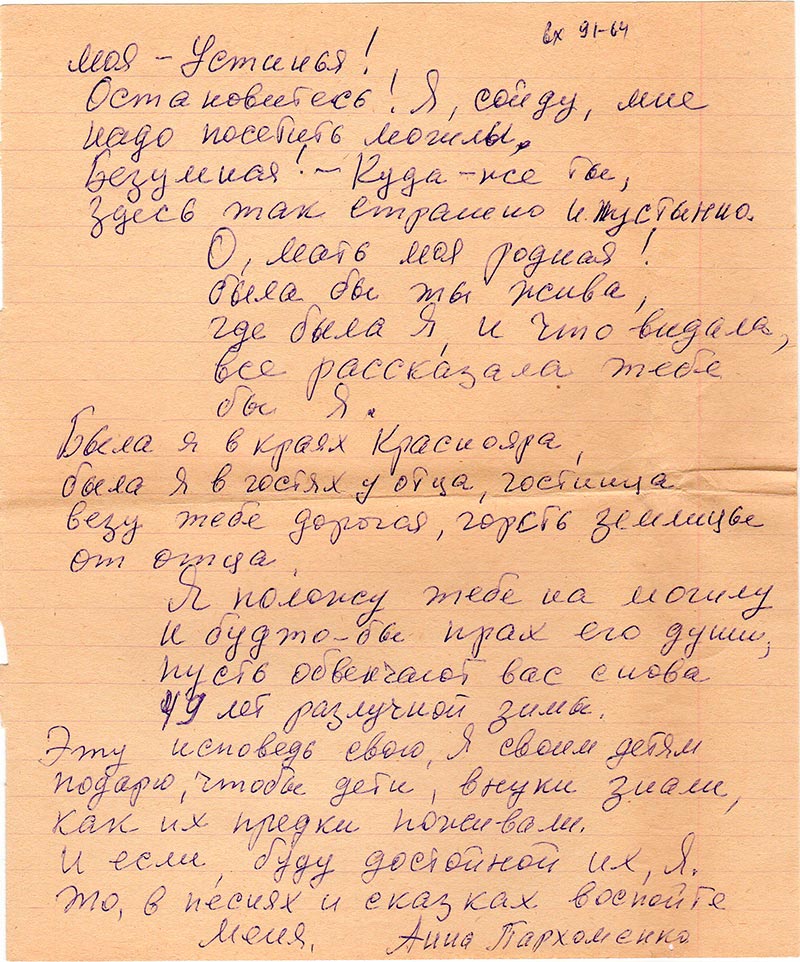 вх 91-64
моя - Устинья!
Остановитесь! Я, сойду, мне
надо посетить могилы.
Безумная! - Куда-же ты,
здесь так страшно и пустынно.
О, мать моя родная!
была бы ты жива,
где была Я, и что видала,
все рассказала тебе
бы Я.
Была я в краях Краснояра,
была Я в гостях у отца, гостинца
везу тебе дорогая, горсть землицы
от отца,
Я положу тебе на могилу
и будто-бы прах его души,
пусть обвенчают вас снова
49 лет разлучной зимы.
Эту исповедь свою, Я своим детям
подарю, чтобы дети, внуки знали,
как их предки поживали.
И если, буду достойной их, Я.
то, в песнях и сказках воспойте
меня. Анна Пархоменко